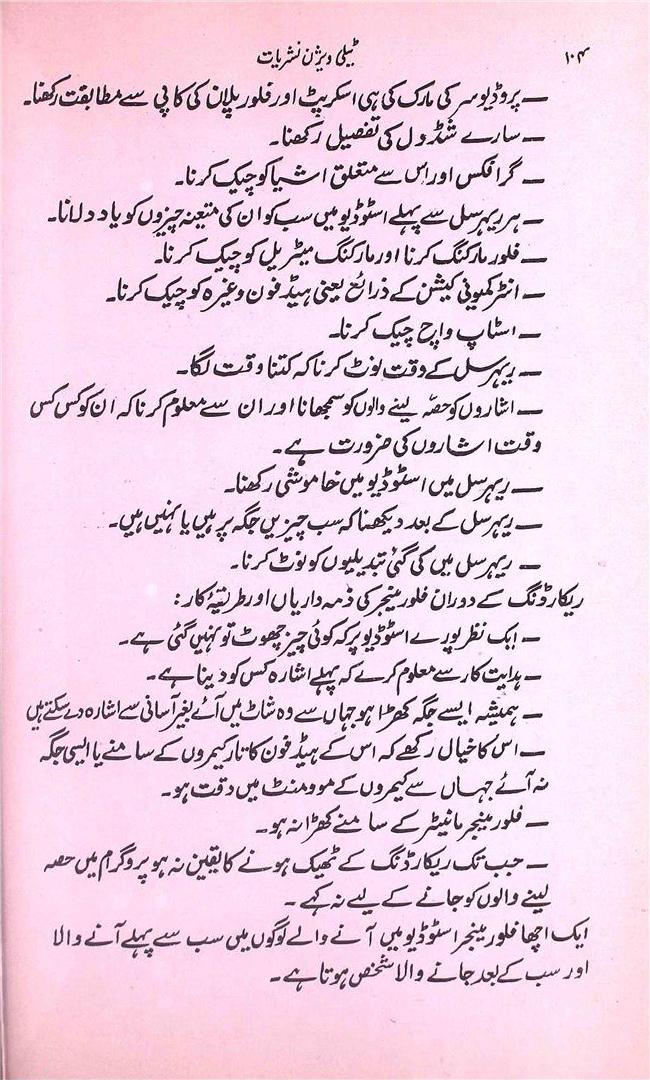 ۱۰۴
ٹیلی ویژن نشریات
— پروڈیوسر کی مارک کی ہی اسکرپٹ اور فلور پلان کی کاپی سے مطابقت رکھنا۔
— سارے شڈول کی تفصیل رکھنا۔
— گرافکس اور اس سے متعلق اشیا کو چیک کرنا۔
— ہر ریہرسل سے پہلے اسٹوڈیو میں سب کو ان کی متعینہ چیزوں کو یاد دلانا۔
— فلور مارکنگ کرنا اور مارکنگ میٹریل کو چیک کرنا۔
— انٹر کمیونی کیشن کے ذرائع یعنی ہیڈ فون وغیرہ کو چیک کرنا۔
— اسٹاپ واچ چیک کرنا۔
— ریہرسل کے وقت نوٹ کرنا کہ کتنا وقت لگا۔
— اشاروں کو حصّہ لینے والوں کو سمجھانا اور ان سے معلوم کرنا کہ ان کو کس کس
وقت اشاروں کی ضرورت ہے۔
— ریہرسل میں اسٹوڈیو میں خاموشی رکھنا۔
— ریہرسل کے بعد دیکھنا کہ سب چیزیں جگہ پر ہیں یا نہیں ہیں۔
— ریہرسل میں کی گئی تبدیلیوں کو نوٹ کرنا۔
ریکارڈنگ کے دوران فلور مینجر کی ذمہ داریاں اور طریقۂ کار:
— ایک نظر پورے اسٹوڈیو پر کہ کوئی چیز چھوٹ تو نہیں گئی ہے۔
— ہدایت کار سے معلوم کرے کہ پہلے اشارہ کس کو دینا ہے۔
— ہمیشہ ایسے جگہ کھڑا ہو جہاں سے وہ شاٹ میں آئے بغیر آسانی سے اشارہ دے سکتے ہیں
— اس کا خیال رکھے کہ اس کے ہیڈ فون کا تار کیمروں کے سامنے یا ایسی جگہ
نہ آئے جہاں سے کیمروں کے موومنٹ میں دقت ہو۔
— فلور مینجر مانیٹر کے سامنے کھڑا نہ ہو۔
— جب تک ریکارڈنگ کے ٹھیک ہونے کا یقین نہ ہو پروگرام میں حصہ
لینے والوں کو جانے کے لیے نہ کہے۔
ایک اچھا فلور مینجر اسٹوڈیو میں آنے والے لوگوں میں سب سے پہلے آنے والا
اور سب کے بعد جانے والا شخص ہوتا ہے۔